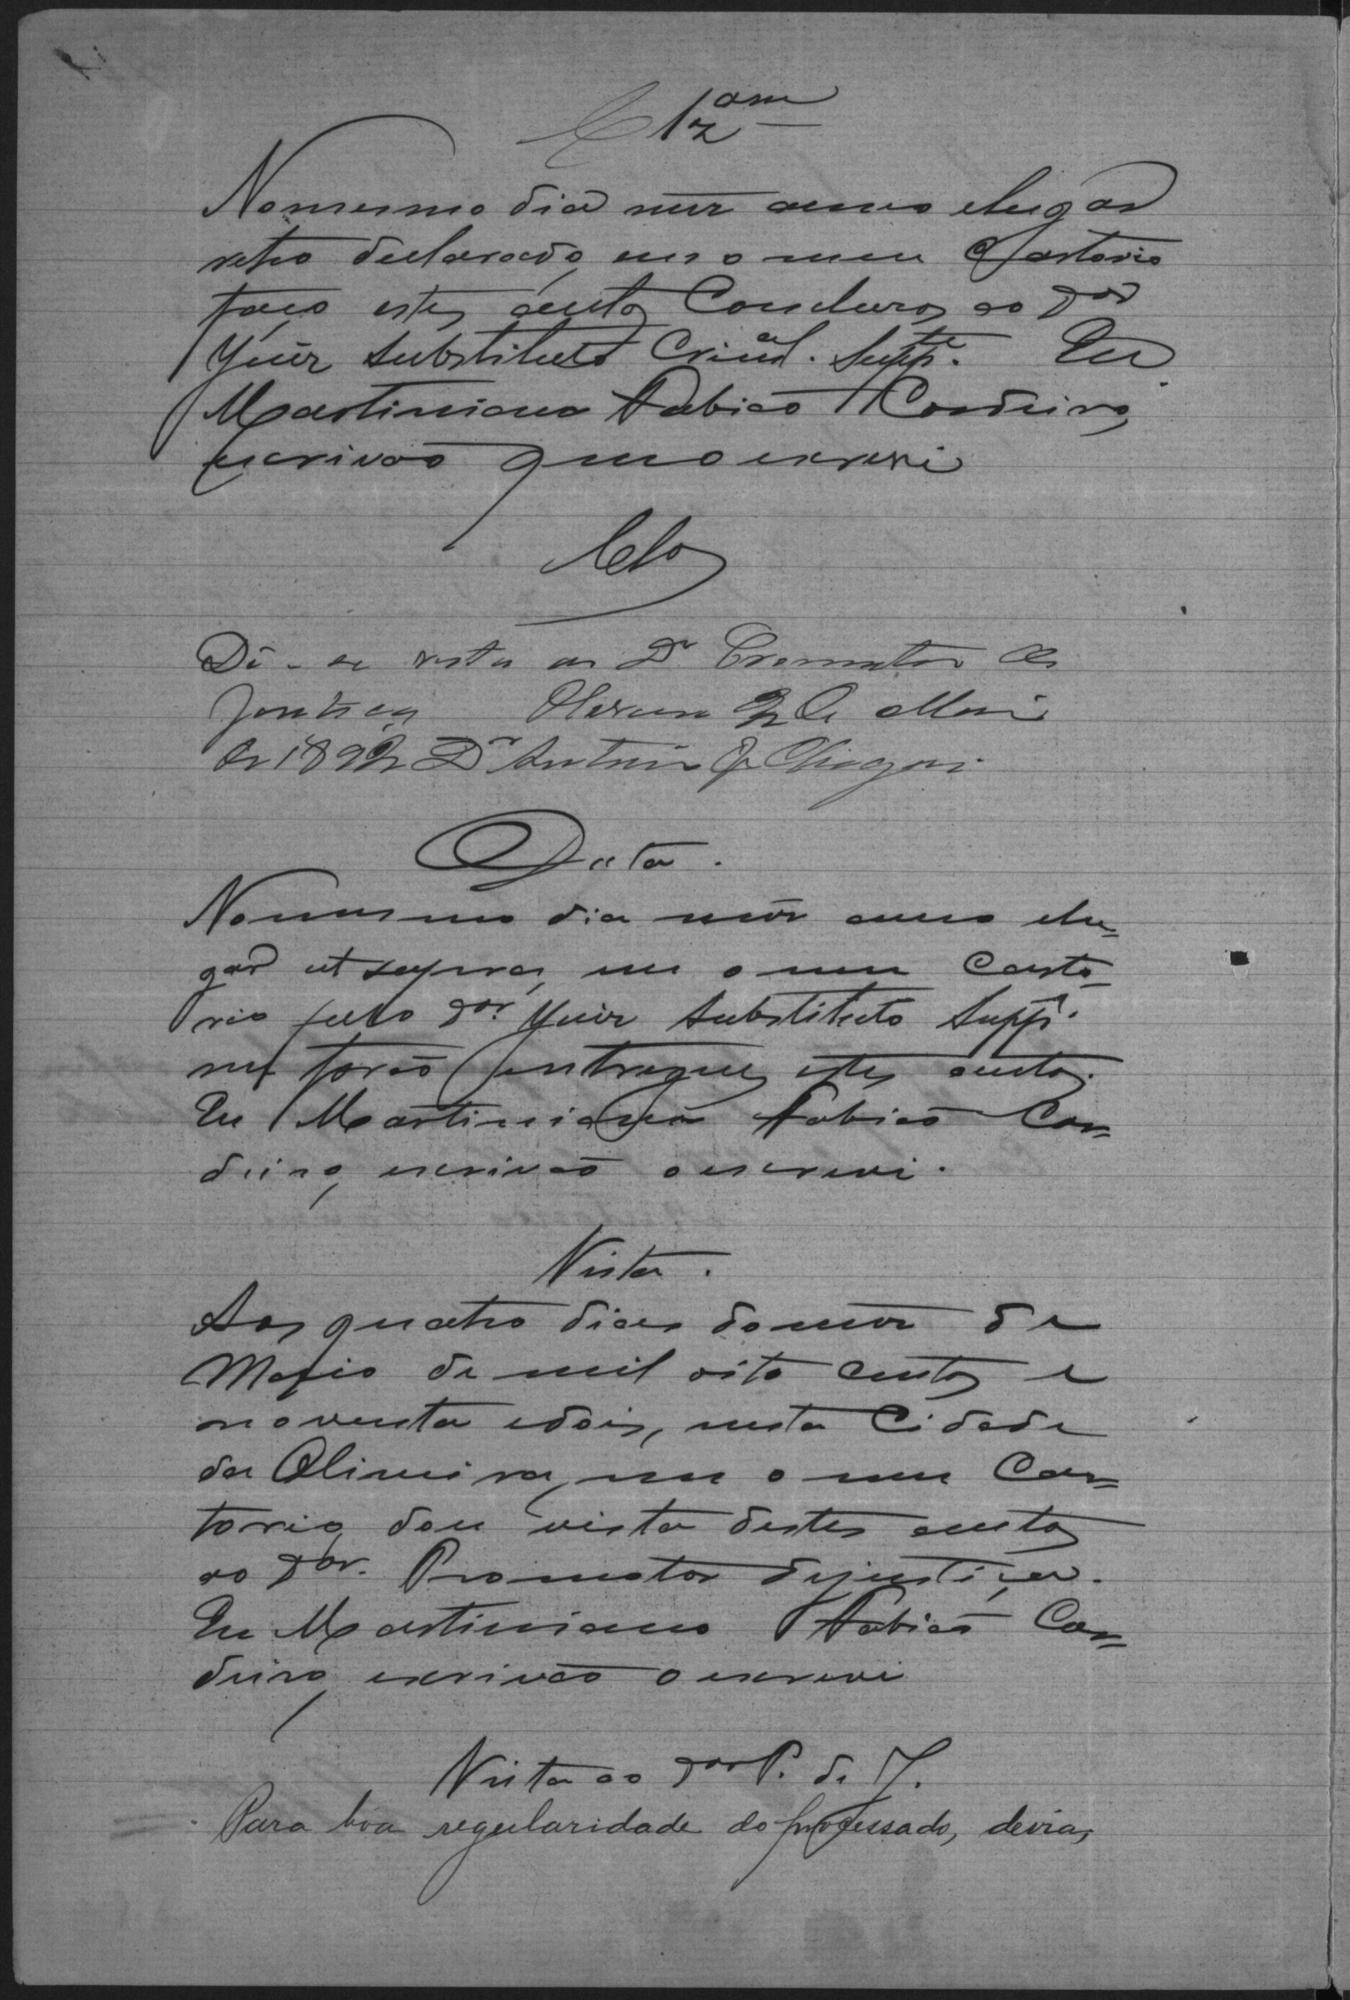 Cl.zam
No mesmo dia mez anno e lugar
retro declarado, em o meu Cartorio
faço estes autos Conclusos ao Dor
Juiz Substituto Criml. Suppe. Eu
Martiniano Fabião Cordeiro,
escrivão que o escrevi
Clos
Dê-se vista ao Dr Promotor de
Justiça de Maio
de 1892 Dr Antonio
Data.
No mesmo dia mez anno e lu=
gar ut supra, em o meu Carto=
rio pelo Dor. Juiz Substituto Suppe.
me forão entregues estes autos.
Eu Martiniano Fabião Cor=
deiro, escrivão o escrevi.
Vista.
Aos quatro dias do mez de
Maio de mil oito centos e
noventa e dois, nesta Cidade
da Oliveira, em o meu Car=
torio, dou vista destes autos
ao Dor. Promotor de justiça.
Eu Martiniano Fabião Cor=
deiro, escrivão o escrevi
Vista ao Dor P. de J.
Para boa regularidade do processado, devia,